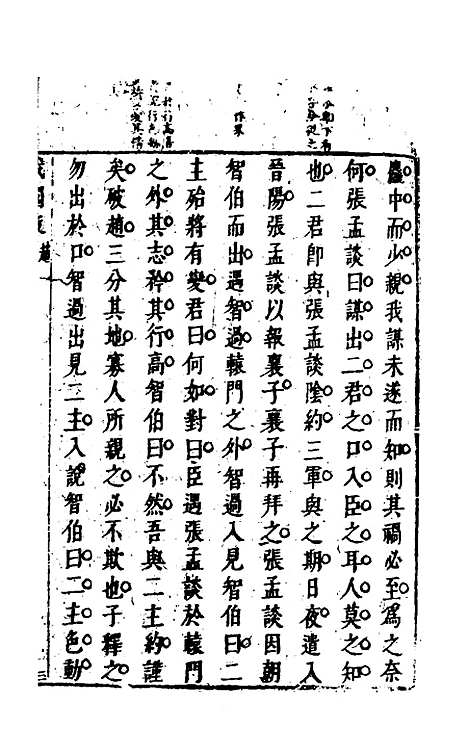 麤中而少親我謀未遂而知則其禍必至爲之奈
何張孟談曰謀出二君之口入臣之耳人莫之知
也二君卽與張孟談陰約三軍與之期日夜遣入
晉陽張孟談以報襄子襄子再拜之張孟談因朝
智伯而出遇智過轅門之外智過入見智伯曰二
主殆將有變君曰何如對曰臣遇張孟談於轅門
之外其志矜其行高智伯曰不然吾與二主約謹
矣破趙三分其地寡人所親之必不欺也子釋之
勿出於口智過出見二主入說智伯曰二主色動